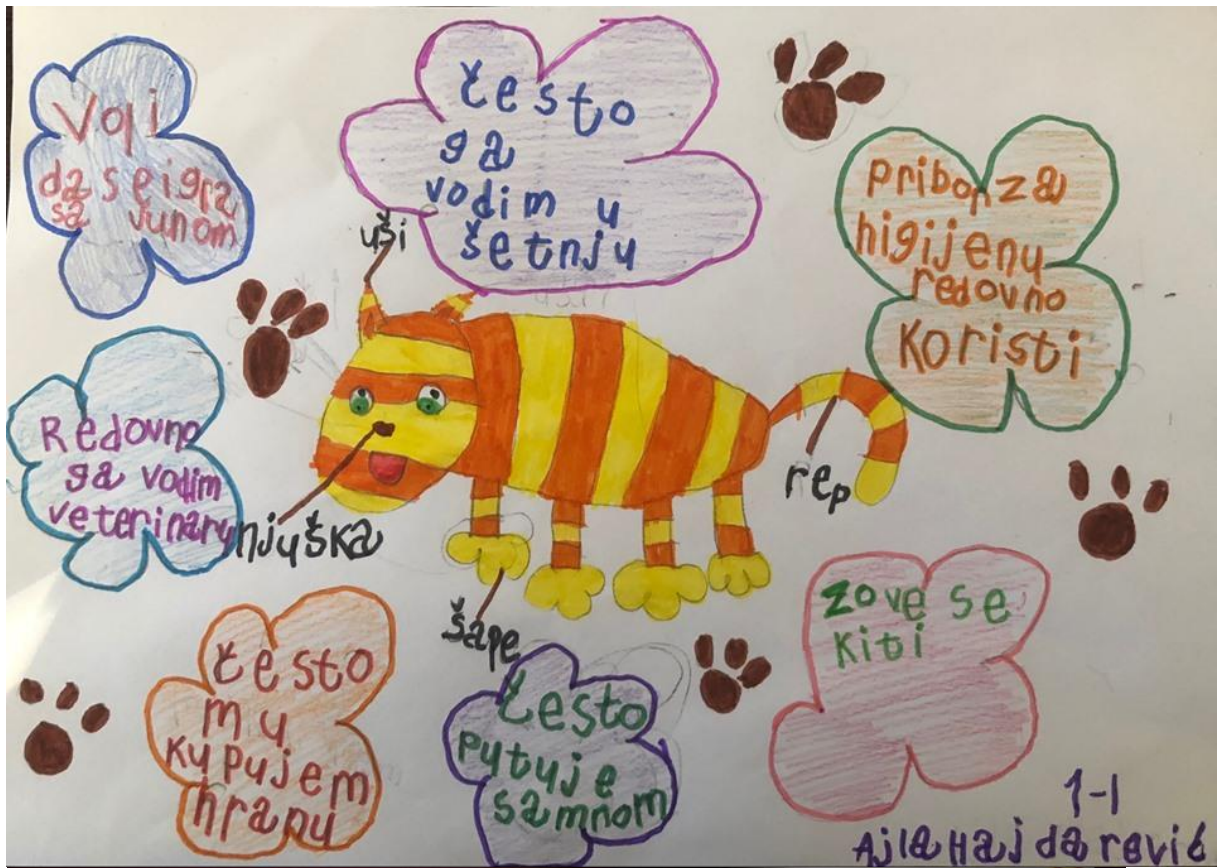 Voli
da se igra
sa Junom
često
ga
vodim u
šetnju
pribor za
higijenu
redovno
koristi
uši
Redovno
ga vodim
veterinaru
njuška
rep
šape
često
mu
kupujem
hranu
često
putuje
samnom
zove se
kiti
1-1
Ajla Hajdarević